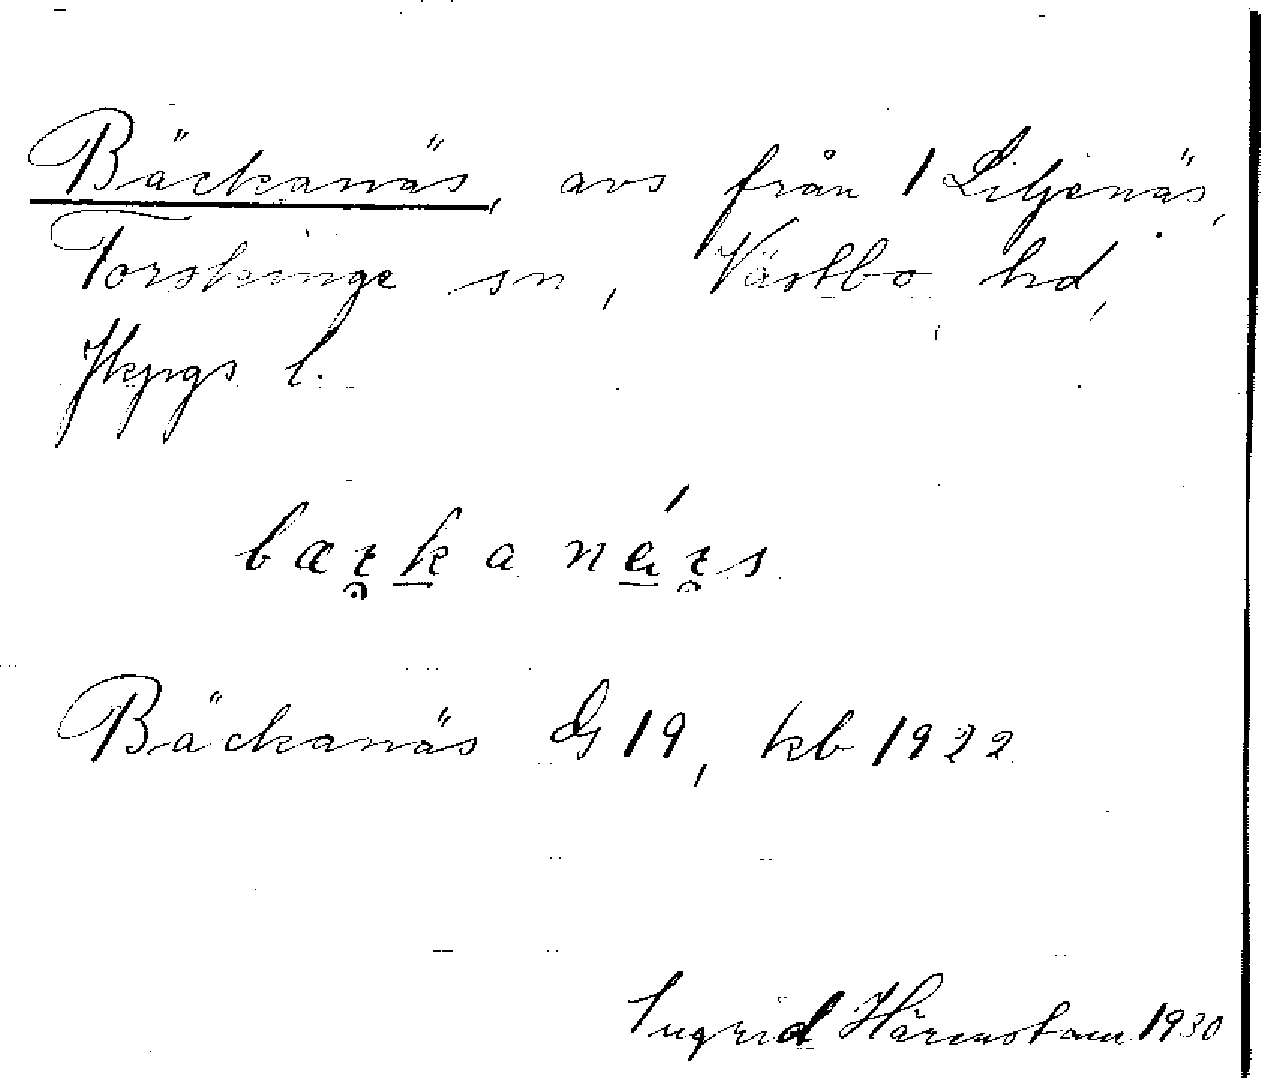 Bäckanäs, avs från 1 Liljenäs,
Torskinge sn, Västbo hd,
Jkpgs l.
Bäckanäs G 19, kb 1922
Ingrid Härenstam 1930